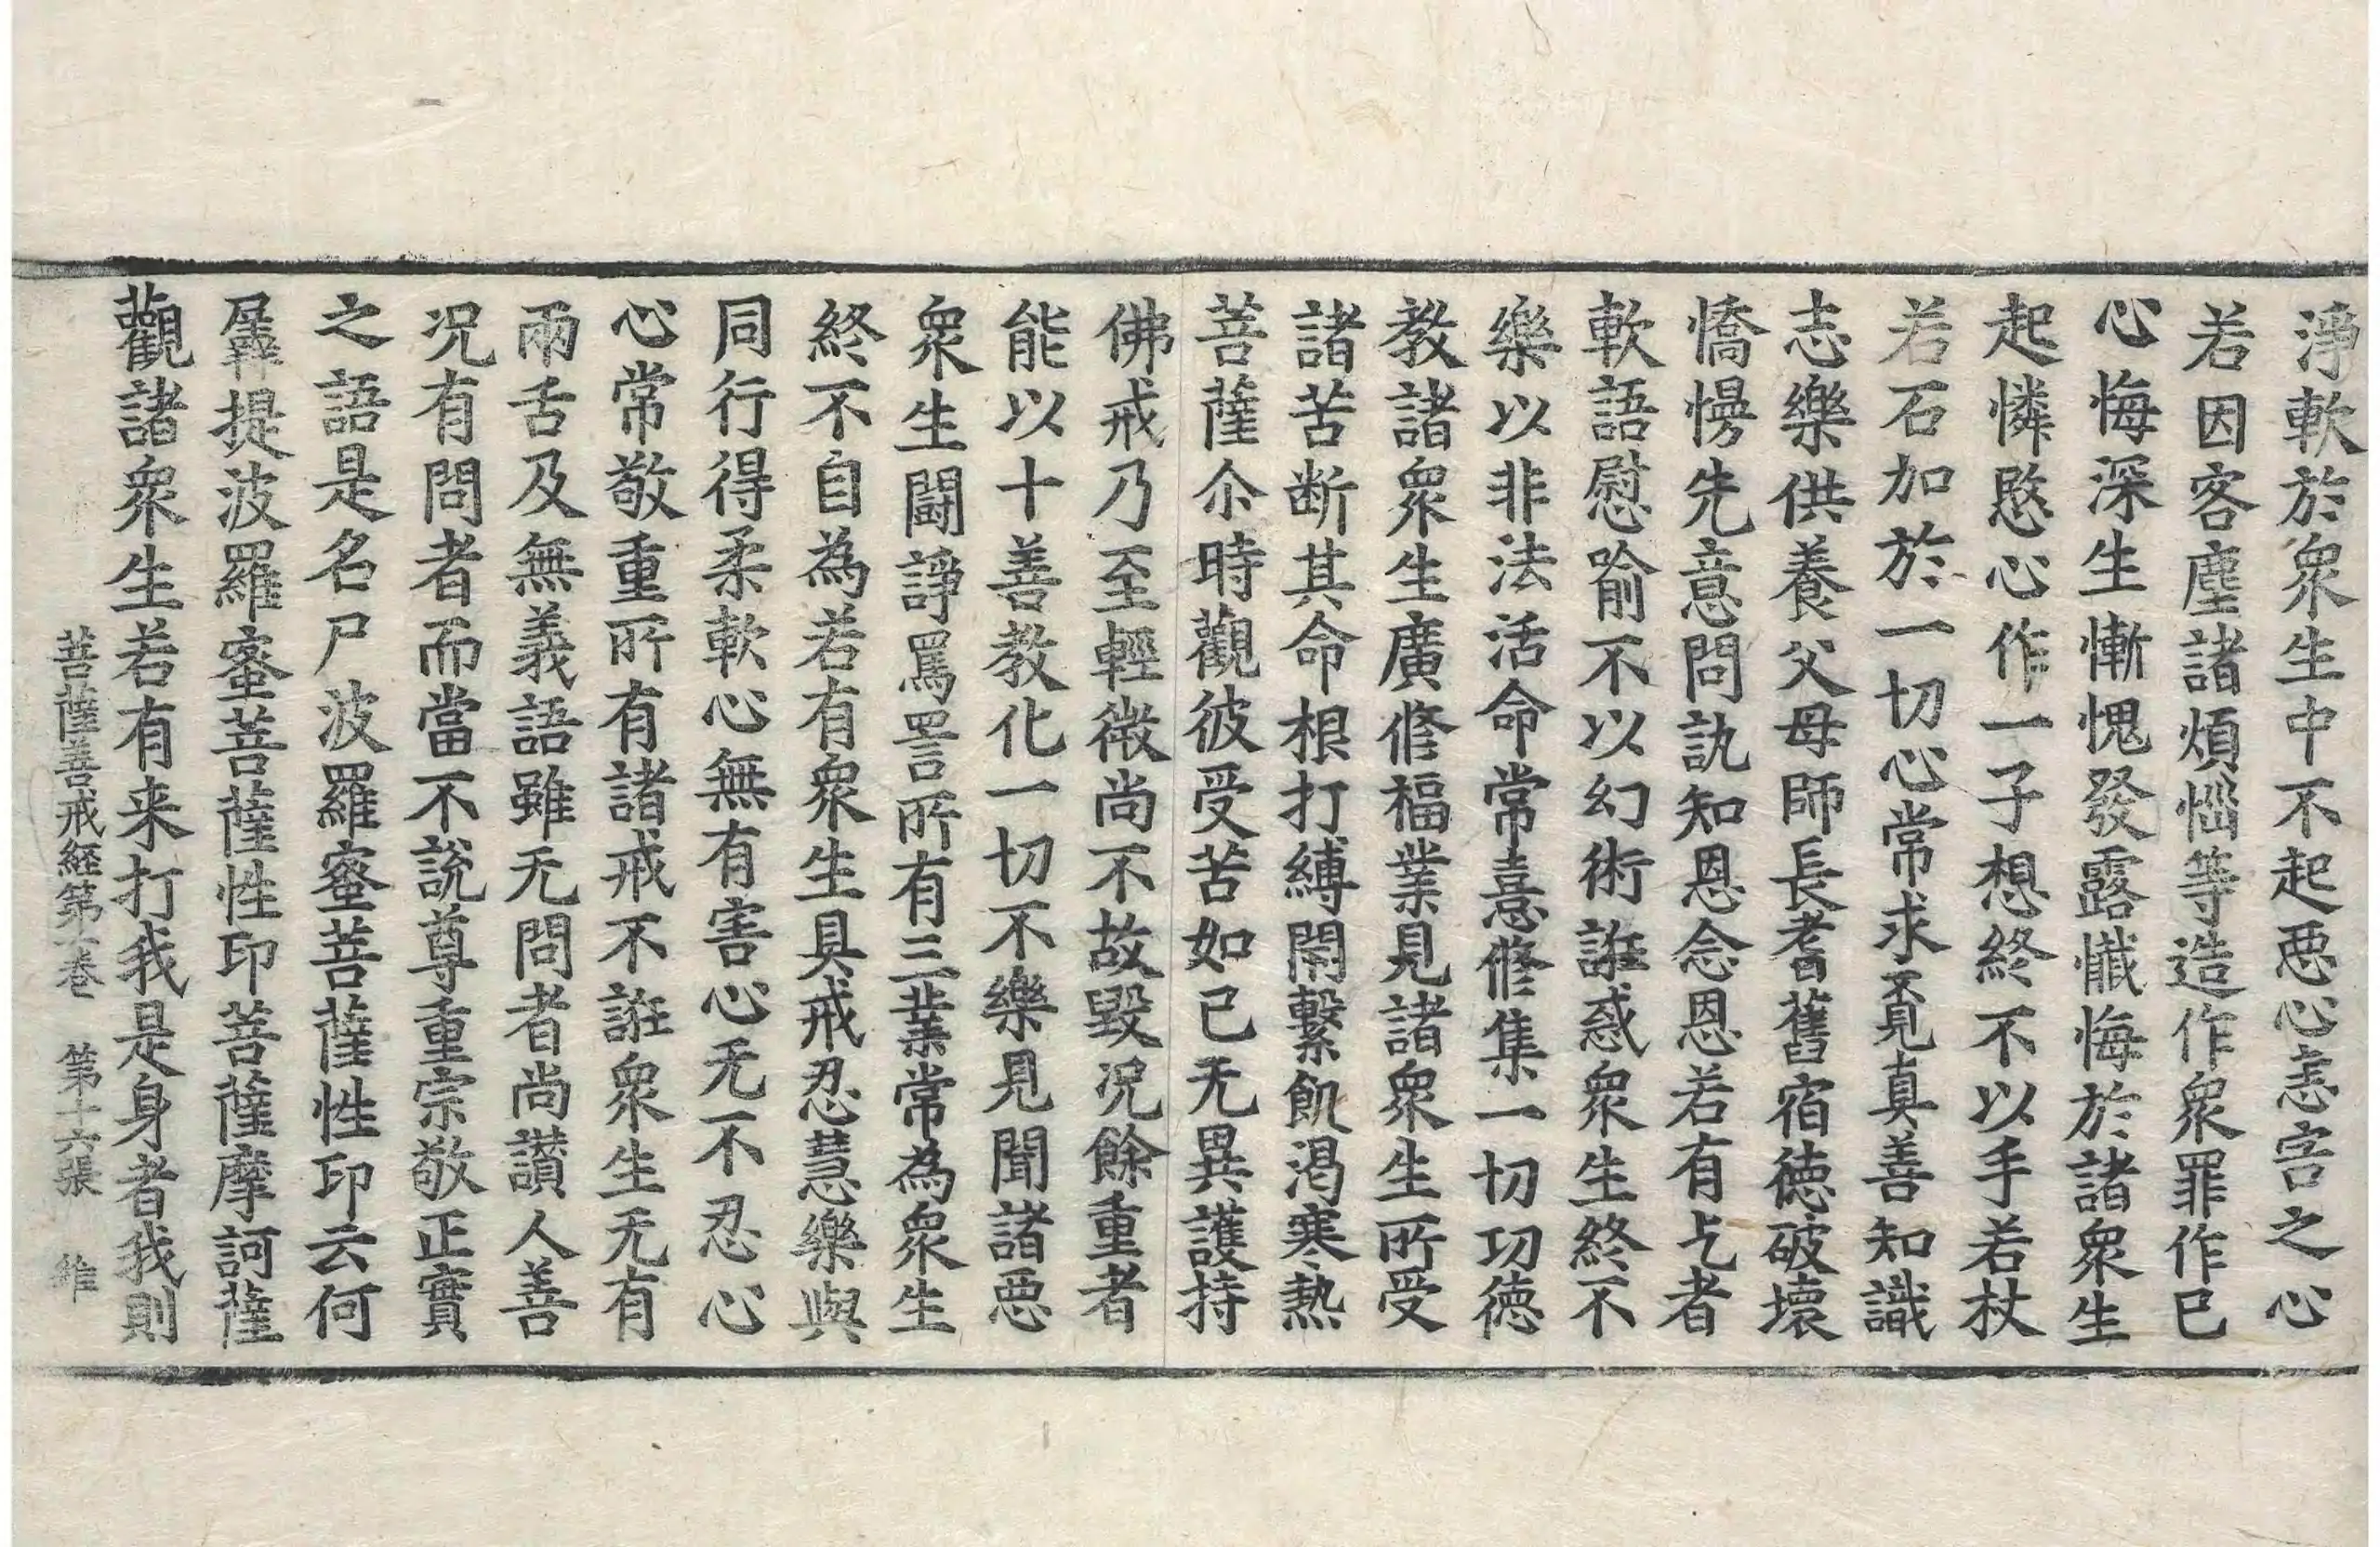 淨軟於衆生中不起惡心恚害之心
若因客塵諸煩惱等造作衆罪作已
心悔深生慚愧發露懴悔於諸衆生
起憐愍心作一子想終不以手若杖
若石加於一切心常求覔真善知識
志樂供養父母師長耆舊宿徳破壞
憍慢先意問訊知恩念恩若有乞者
軟語慰喻不以幻術誑惑衆生終不
樂以非法活命常憙修集一切功徳
教諸衆生廣修福業見諸衆生所受
諸苦断其命根打縛閇繫飢渴寒熱
菩薩尒時觀彼受苦如己无異護持
佛戒乃至輕微尚不故毀况餘重者
能以十善教化一切不樂見聞諸惡
衆生鬪諍罵詈所有三業常為衆生
終不自為若有衆生具戒忍慧樂與
同行得柔軟心無有害心无不忍心
心常敬重所有諸戒不誑衆生无有
兩舌及無義語雖无問者尚讃人善
况有問者而當不說尊重宗敬正實
之語是名尸波羅蜜菩薩性印云何
羼提波羅蜜菩薩性印菩薩摩訶薩
觀諸衆生若有来打我是身者我則
菩薩善戒経第一巻 第十六張 維